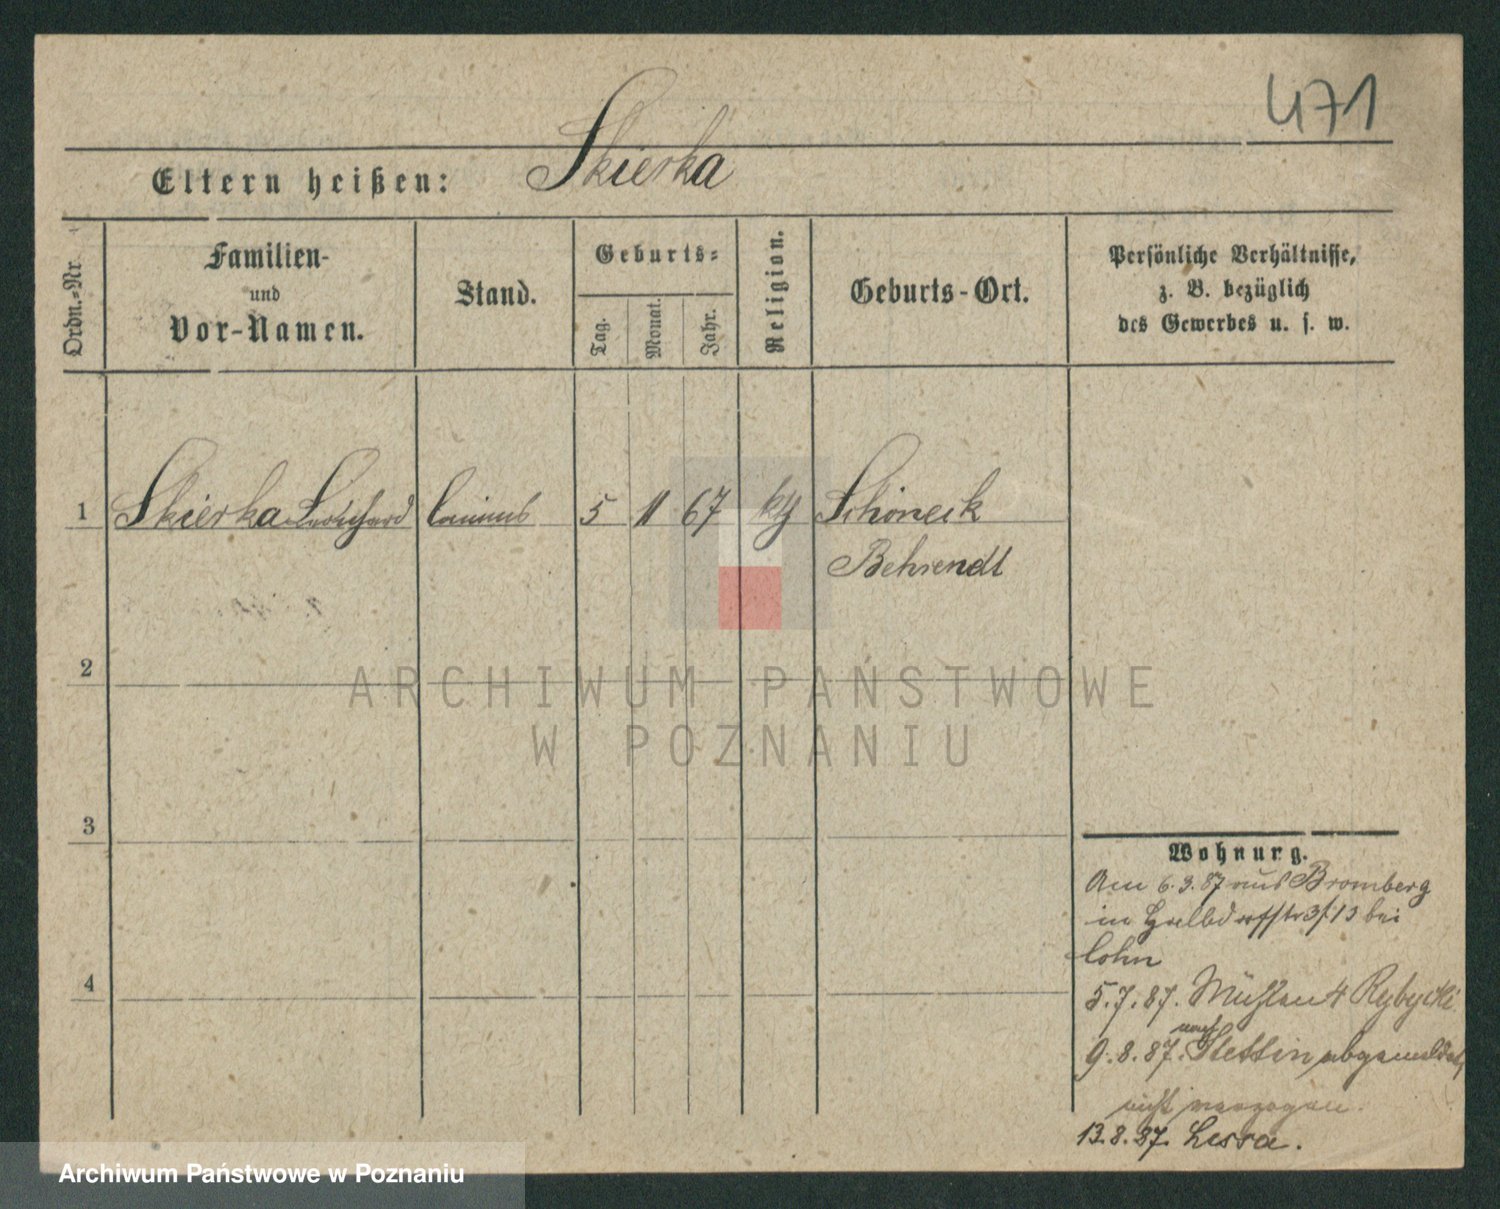 471
Eltern heißen: Skierka
Ordn.-Nr.
Familien-
und
Vor-Namen.
Stand.
Geburts-
Tag.
Monat.
Jahr.
Religion.
Geburts-Ort.
Persönliche Verhältnisse,
z. B. bezüglich
des Gewerbes u. s. w.
1 Skierka Commis 5 11 67 Schöneck
Behrendt
2
3
4
Wohnung.
Am 6.3.87 aus Bromberg
in Halbdorfstr 3/13 bei
Cohn
5.7.87. Mühlen 4 Rybycki
9.8.87. nach Stettin abgemeldet,
nicht verzogen.
13.8.87. Lessa.
ARCHIWUM PAŃSTWOWE
W POZNANIU
Archiwum Państwowe w Poznaniu